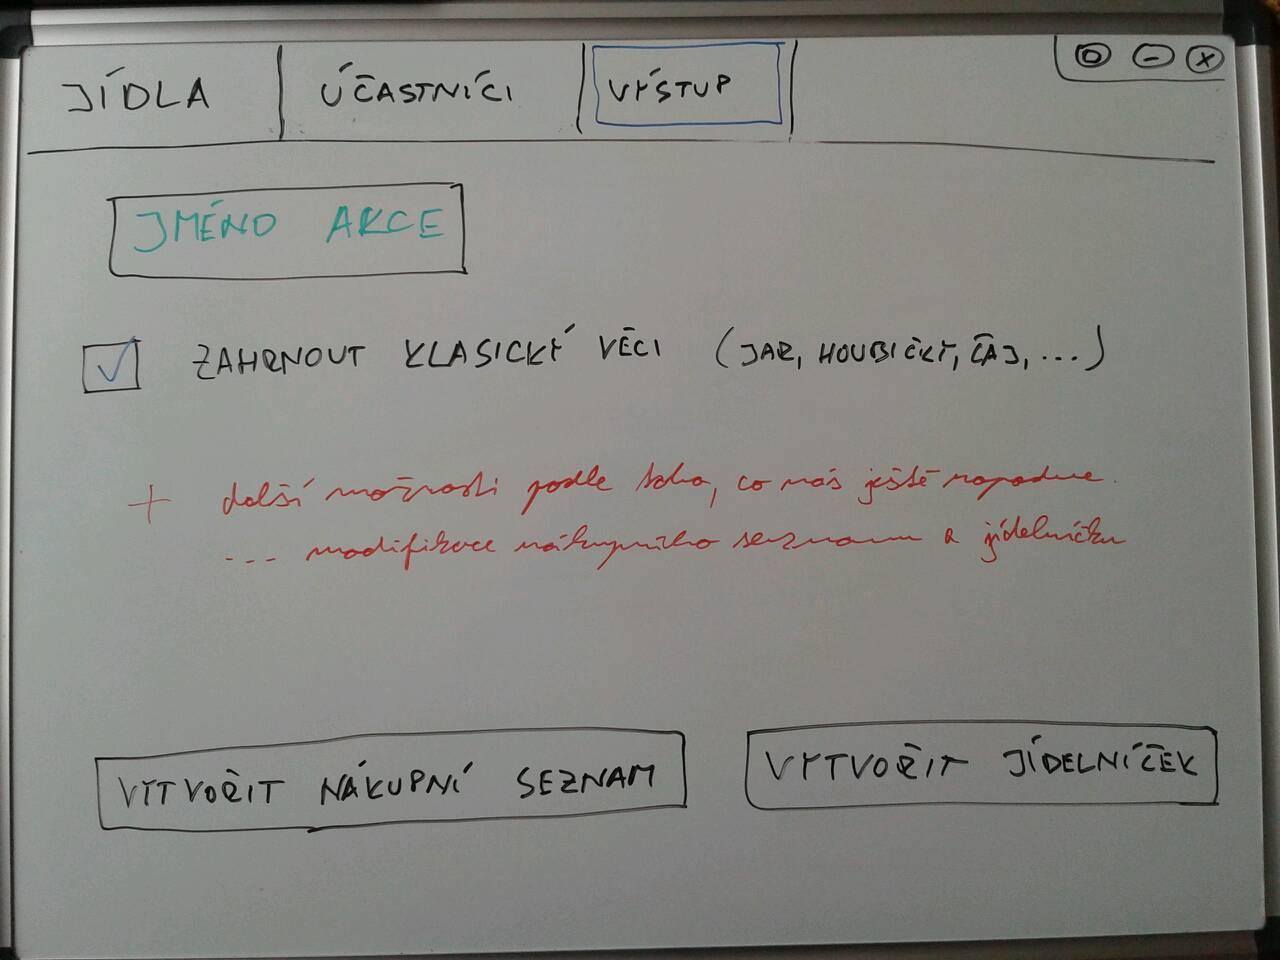 JÍDLA ÚČASTNÍCI VÝSTUP
JMÉNO AKCE
ZAHRNOUT KLASICKÝ VĚCI (JAR, HOUBIČKY, ČAJ, ...)
+ další možnosti podle toho, co nás ještě napadne.
... modifikace nákupního seznamu a jídelníčku
VYTVOŘIT NÁKUPNÍ SEZNAM VYTVOŘIT JÍDELNÍČEK